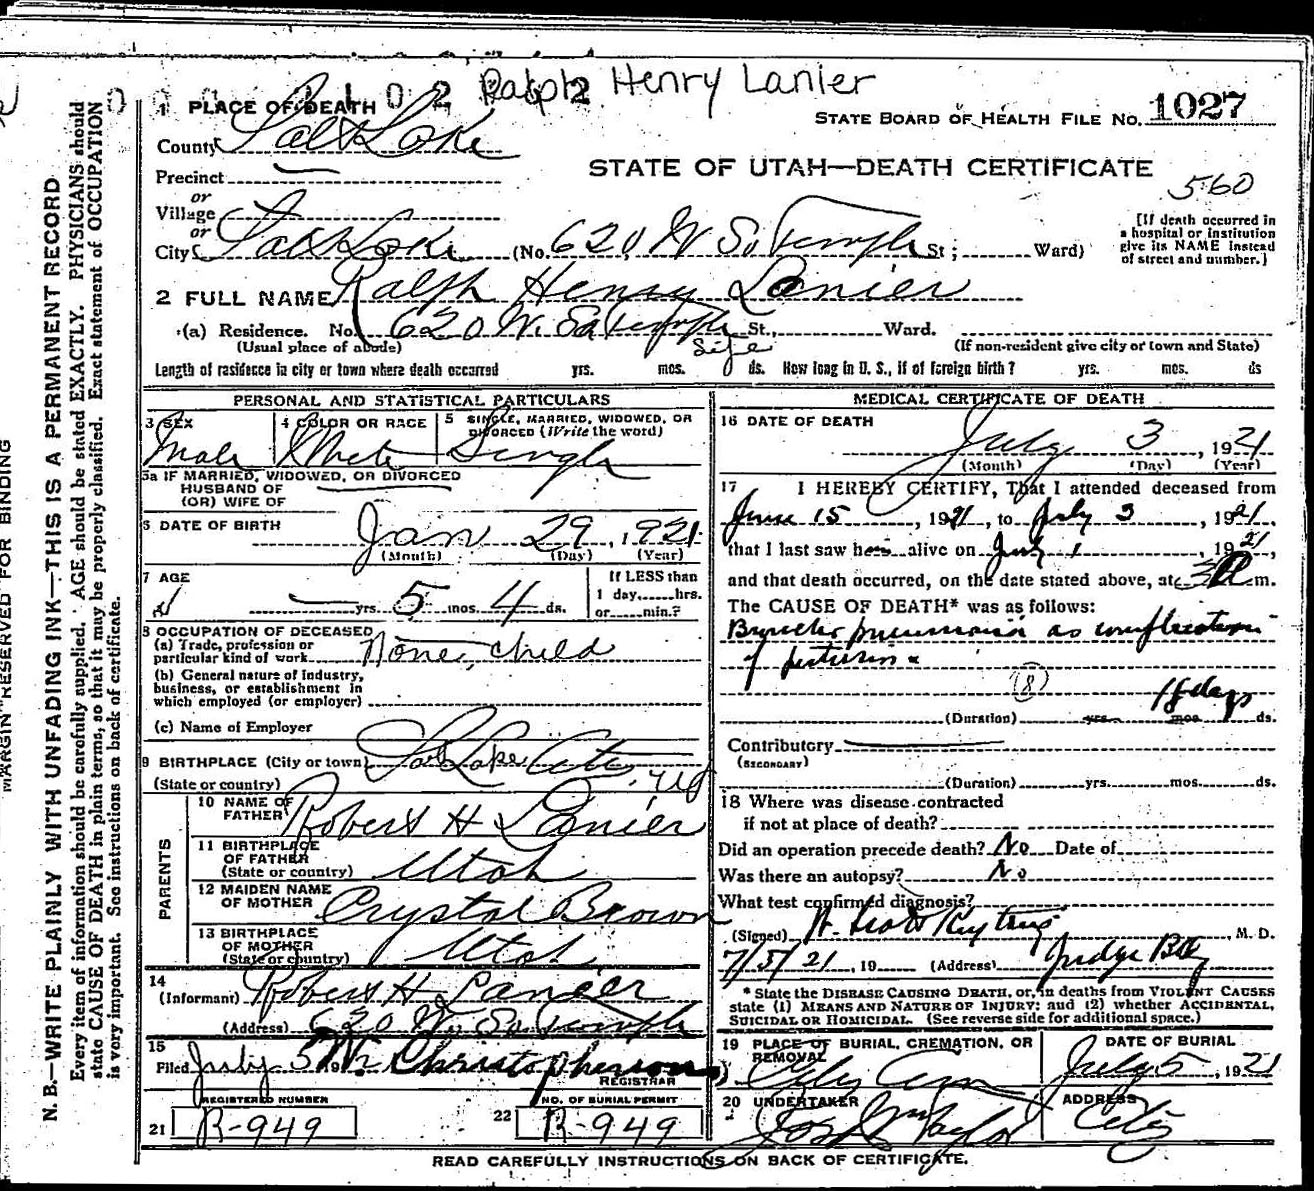 Ralph Henry Lanier
1 PLACE OF DEATH
STATE BOARD OF HEALTH FILE NO. 1027
County Salt Lake
STATE OF UTAH—DEATH CERTIFICATE
Precinct
560
or
Village
or
City Salt Lake (No. 620 W. So. Temple St; Ward)
[If death occurred in
a hospital or institution
give its NAME instead
of street and number.]
2 FULL NAME Ralph Henry Lanier
(a) Residence. No. 620 W. So Temple St., Ward.
(Usual place of abode)
(If non-resident give city or town and State)
Life
Length of residence in city or town where death occurred yrs. mos. ds. How long in U. S., if of foreign birth? yrs. mos. ds
PERSONAL AND STATISTICAL PARTICULARS
3 SEX
Male
4 COLOR OR RACE
White
5 SINGLE, MARRIED, WIDOWED, OR
DIVORCED (Write the word)
Single
5a IF MARRIED, WIDOWED, OR DIVORCED
HUSBAND OF
(OR) WIFE OF
6 DATE OF BIRTH
Jan 29, 1921
(Month) (Day) (Year)
7 AGE
yrs. 5 mos. 4 ds.
If LESS than
1 day, hrs.
or min.?
8 OCCUPATION OF DECEASED
(a) Trade, profession or
particular kind of work None, child
(b) General nature of Industry,
business, or establishment in
which employed (or employer)
(c) Name of Employer
9 BIRTHPLACE (City or town) Salt Lake City,
(State or country)
PARENTS
10 NAME OF
FATHER Robert H Lanier
11 BIRTHPLACE
OF FATHER
(State or country) Utah
12 MAIDEN NAME
OF MOTHER Crystal Brown
13 BIRTHPLACE
OF MOTHER
(State or country) Utah
14
(Informant) Robert H Lanier
(Address) 620 W. So. Temple
15
Filed July 5 19 Christopherson
REGISTRAR
REGISTERED NUMBER
21 R-949
NO. OF BURIAL PERMIT
22 R-949
MEDICAL CERTIFICATE OF DEATH
16 DATE OF DEATH
July 3, 1921
(Month) (Day) (Year)
17 I HEREBY CERTIFY, That I attended deceased from
June 15, 1921, to July 3, 1921,
that I last saw him alive on July 1, 1921,
and that death occurred, on the date stated above, at 3 A m.
The CAUSE OF DEATH* was as follows:
Broncho pneumonia as complication
of pertussis
(8)
18 days
(Duration) yrs. mos. ds.
Contributory
(SECONDARY)
(Duration) yrs. mos. ds.
18 Where was disease contracted
if not at place of death?
Did an operation precede death? No Date of
Was there an autopsy? No
What test confirmed diagnosis?
(Signed) M. D.
7/5/21, 19 (Address) Judge Bldg
* State the DISEASE CAUSING DEATH, or, in deaths from VIOLENT CAUSES
state (1) MEANS AND NATURE OF INJURY; and (2) whether ACCIDENTAL,
SUICIDAL OR HOMICIDAL. (See reverse side for additional space.)
19 PLACE OF BURIAL, CREMATION, OR
REMOVAL
City Cem
DATE OF BURIAL
July 5, 1921
20 UNDERTAKER
Jos Wm Taylor
ADDRESS
City
READ CAREFULLY INSTRUCTIONS ON BACK OF CERTIFICATE.
MARGIN RESERVED FOR BINDING
N. B.—WRITE PLAINLY WITH UNFADING INK—THIS IS A PERMANENT RECORD
Every item of information should be carefully supplied. AGE should be stated EXACTLY. PHYSICIANS should
state CAUSE OF DEATH in plain terms, so that it may be properly classified. Exact statement of OCCUPATION
is very important. See instructions on back of certificate.